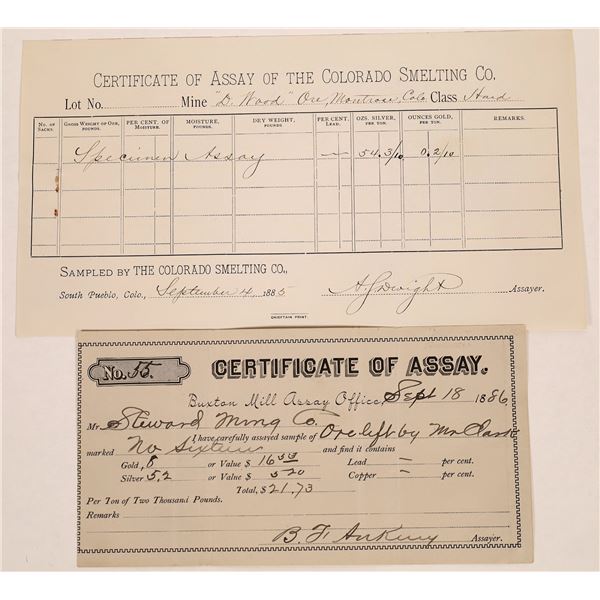 CERTIFICATE OF ASSAY OF THE COLORADO SMELTING CO.
Lot No. Mine "D. Wood" Ore, Montrose, Colo. Class Hard
No. of Sacks. Gross Weight of Ore, Pounds. Per Cent. of Moisture. Moisture, Pounds. Dry Weight, Pounds. Per Cent. Lead. Ozs. Silver, Per Ton. Ounces Gold, Per Ton. Remarks.
Specimen Assay — 54.3/10 0.2/10
Sampled by THE COLORADO SMELTING CO.,
South Pueblo, Colo., September 4 1885 Assayer.
CHIEFTAIN PRINT.
No. 55. CERTIFICATE OF ASSAY.
Buxton Mill Assay Office, Sept 18 1886
Mr Steward Mining Co.
I have carefully assayed sample of Ore left by Mr Clark
marked No Sixteen and find it contains
Gold, .8 or Value $ 16.53 Lead — per cent.
Silver 5.2 or Value $ 5.20 Copper — per cent.
Total, $ 21.73
Per Ton of Two Thousand Pounds.
Remarks
B. F. Assayer.